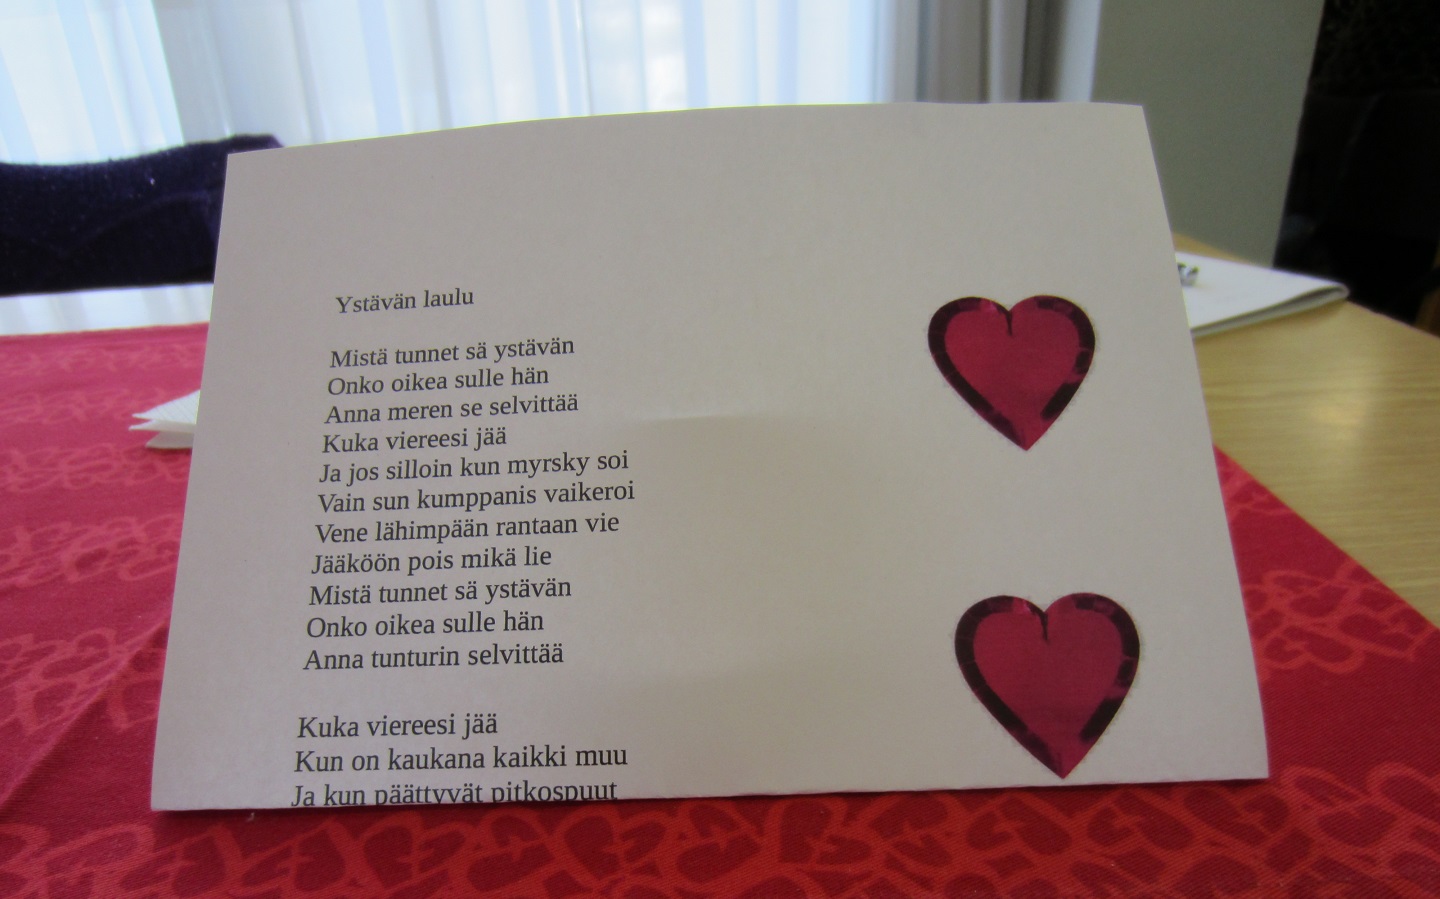 Ystävän laulu
Mistä tunnet sä ystävän
Onko oikea sulle hän
Anna meren se selvittää
Kuka viereesi jää
Ja jos silloin kun myrsky soi
Vain sun kumppanis vaikeroi
Vene lähimpään rantaan vie
Jääköön pois mikä lie
Mistä tunnet sä ystävän
Onko oikea sulle hän
Anna tunturin selvittää
Kuka viereesi jää
Kun on kaukana kaikki muu
Ja kun päättyvät pitkospuut